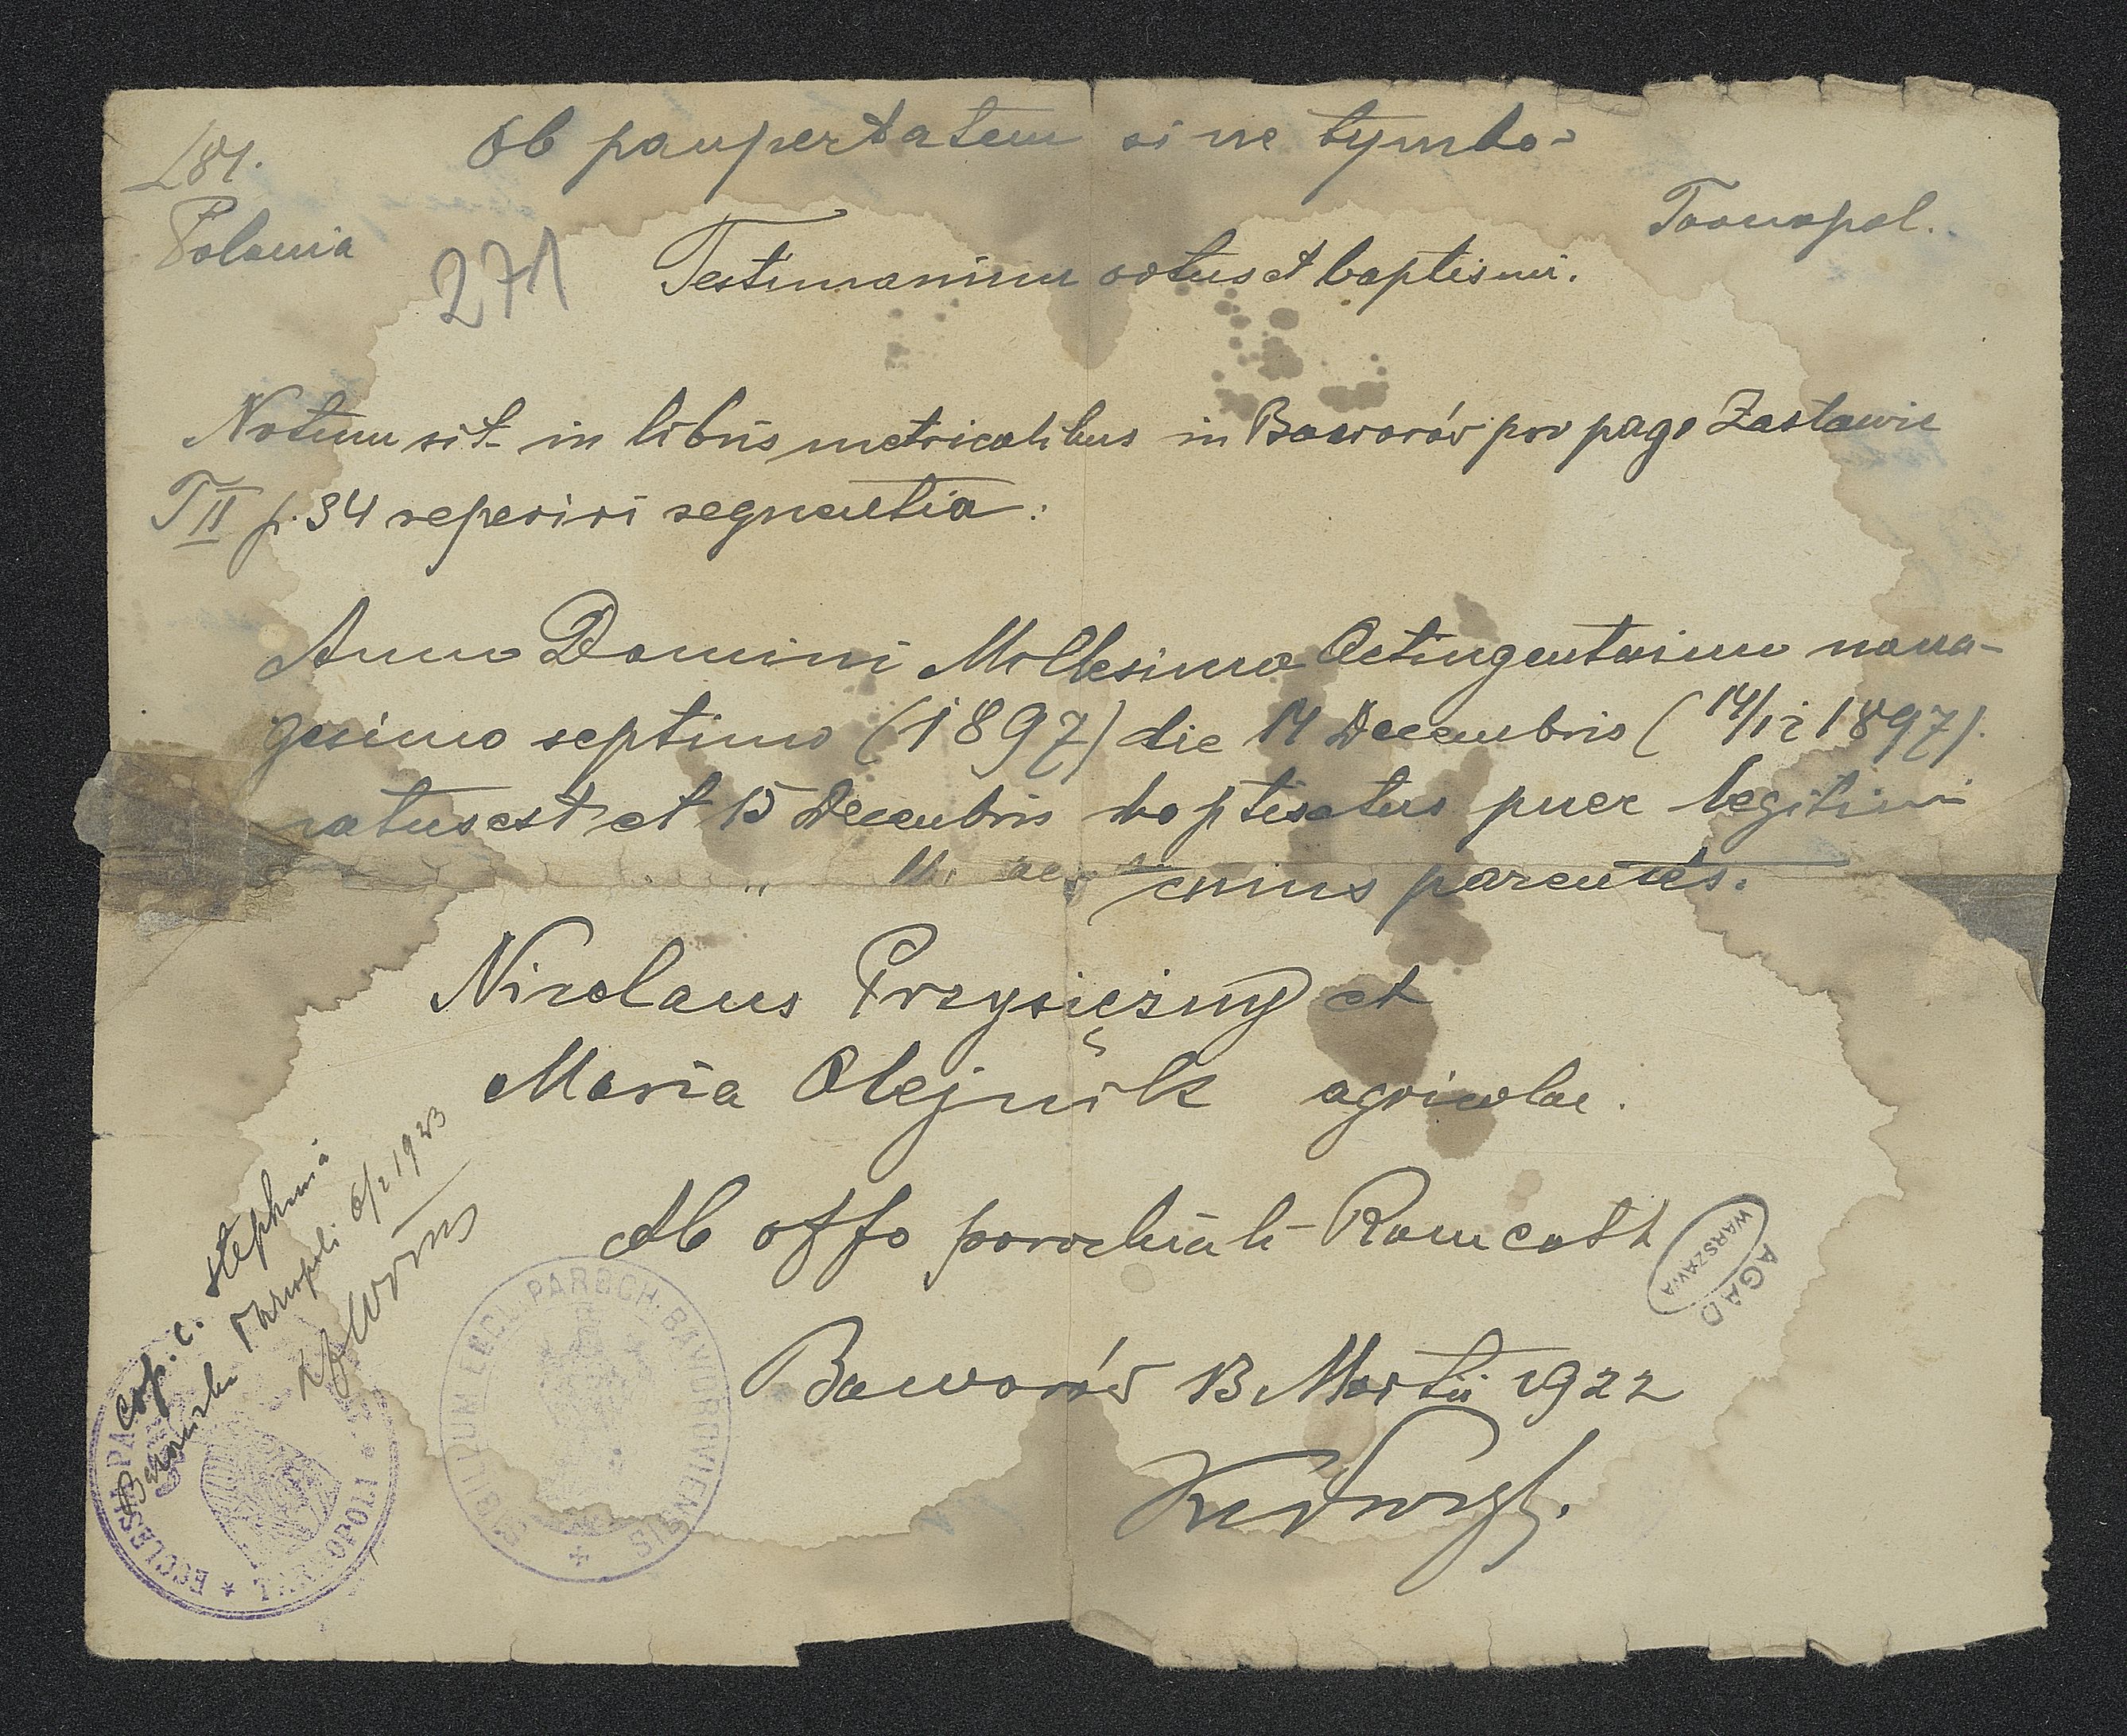 Ob paupertatem sine tymbo-
281.
Polonia
Tarnopol.
271
Testimonium ortus et baptismi.
Notum sit in libris metricalibus in Baworów pro pago Zastawie
T II p. 34 reperiri sequentia:
Anno Domini Millesimo Octingentesimo nona-
gesimo septimo (1897) die 14 Decembris (14/12 1897).
natus est et 15 Decembris baptisatus puer legitimi
cuius parentes.
Nicolaus Przysiężny et
Maria Olejnik agricolae.
Ab offo parochiali Rom cath
Baworów 13 Martii 1922
Cop. c. Stephania
Tarnopoli 6/2 1923
SIGILLUM ECCL. PAROCH. BAVOROVIENSIS
ECCLESIA TARNOPOLI
AGAD
WARSZAWA